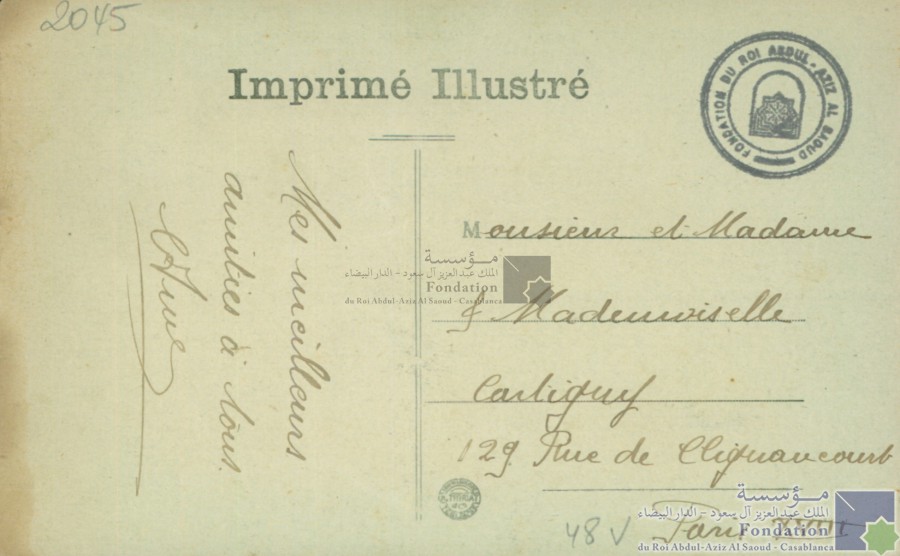 2045
Imprimé Illustré
FONDATION DU ROI ABDUL-AZIZ AL SAOUD
Mes meilleurs
amitiés à tous
Monsieur et Madame
& Mademoiselle
Cartigny
129 Rue de Clignancourt
Paris XVIII
48 V
مؤسسة
الملك عبد العزيز آل سعود - الدار البيضاء
Fondation
du Roi Abdul-Aziz Al Saoud - Casablanca
مؤسسة
الملك عبد العزيز آل سعود - الدار البيضاء
Fondation
du Roi Abdul-Aziz Al Saoud - Casablanca